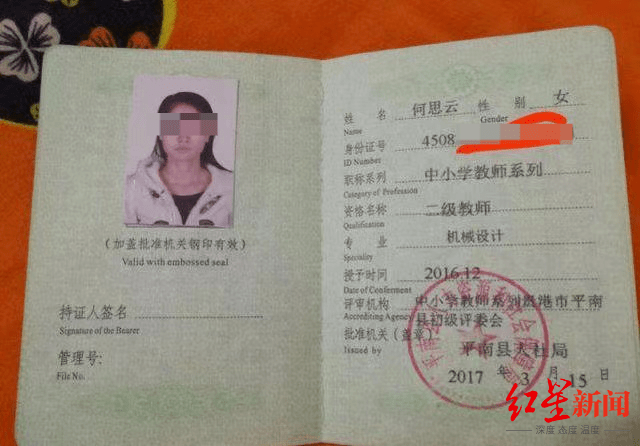 （加盖批准机关钢印有效）
Valid with embossed seal
持证人签名
Signature of the Bearer
管理号:
File No.
姓 名 何思云 性 别 女
Name Gender
身份证号 4508
ID Number
职称系列 中小学教师系列
Category of Profession
资格名称 二级教师
Qualification
专 业 机械设计
Speciality
授予时间 2016.12
Date of Conferment
评审机构 中小学教师系列贵港市平南
Accrediting Agency 县初级评委会
批准机关（盖章）
Issued by 平南县人社局
2017 年 3 月 15 日
红星新闻
深度 态度 温度